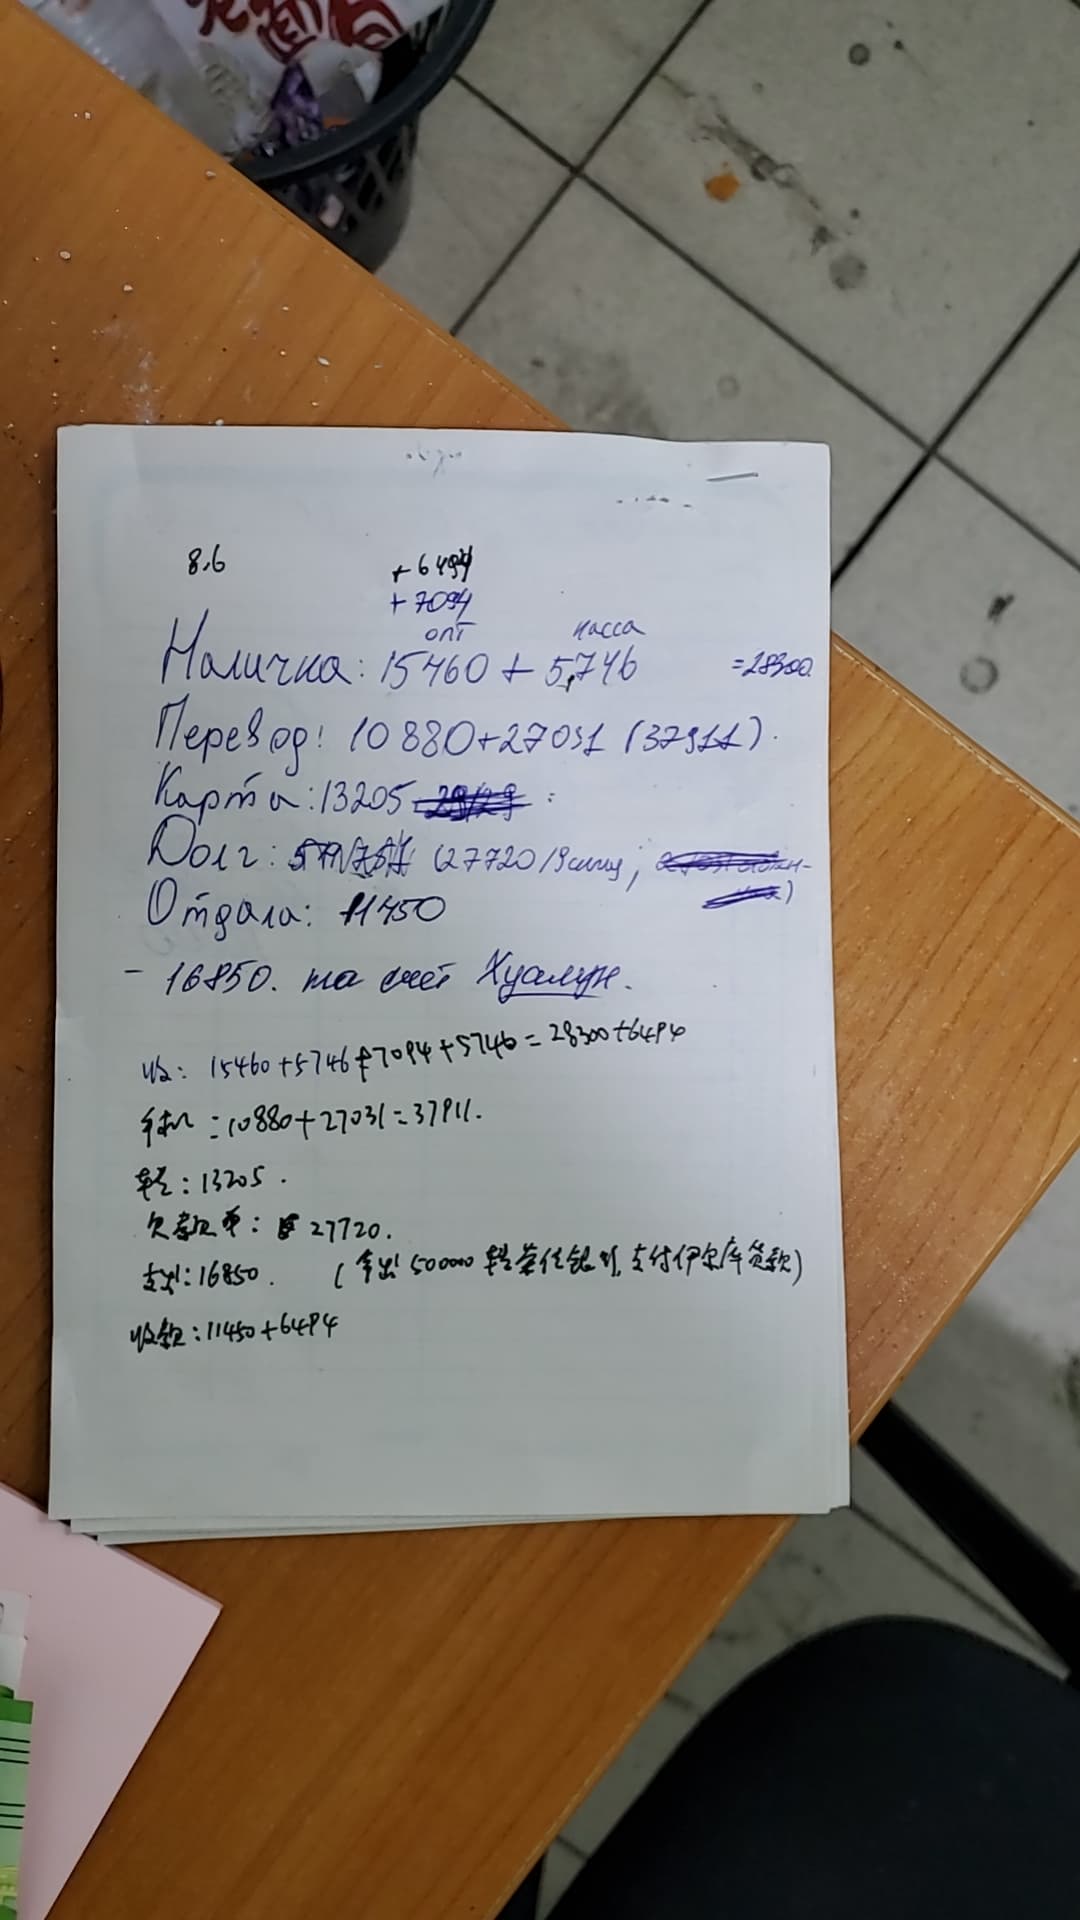 8.6
+6494
+7094
опт касса
Наличка: 15460 + 5,746 =28300.
Перевод: 10880+27031 (37911).
Карта: 13205
Долг: (27720 /
Отдала: 11450
- 16850. на счёт Хуалун.
收: 15460+5746+7094+5746=28300+6494
手机:10880+27031=37911.
13205.
欠款单: 27720.
支出:16850. (拿出 50000 银行, 支付伊尔库货款)
收款:11450+6494